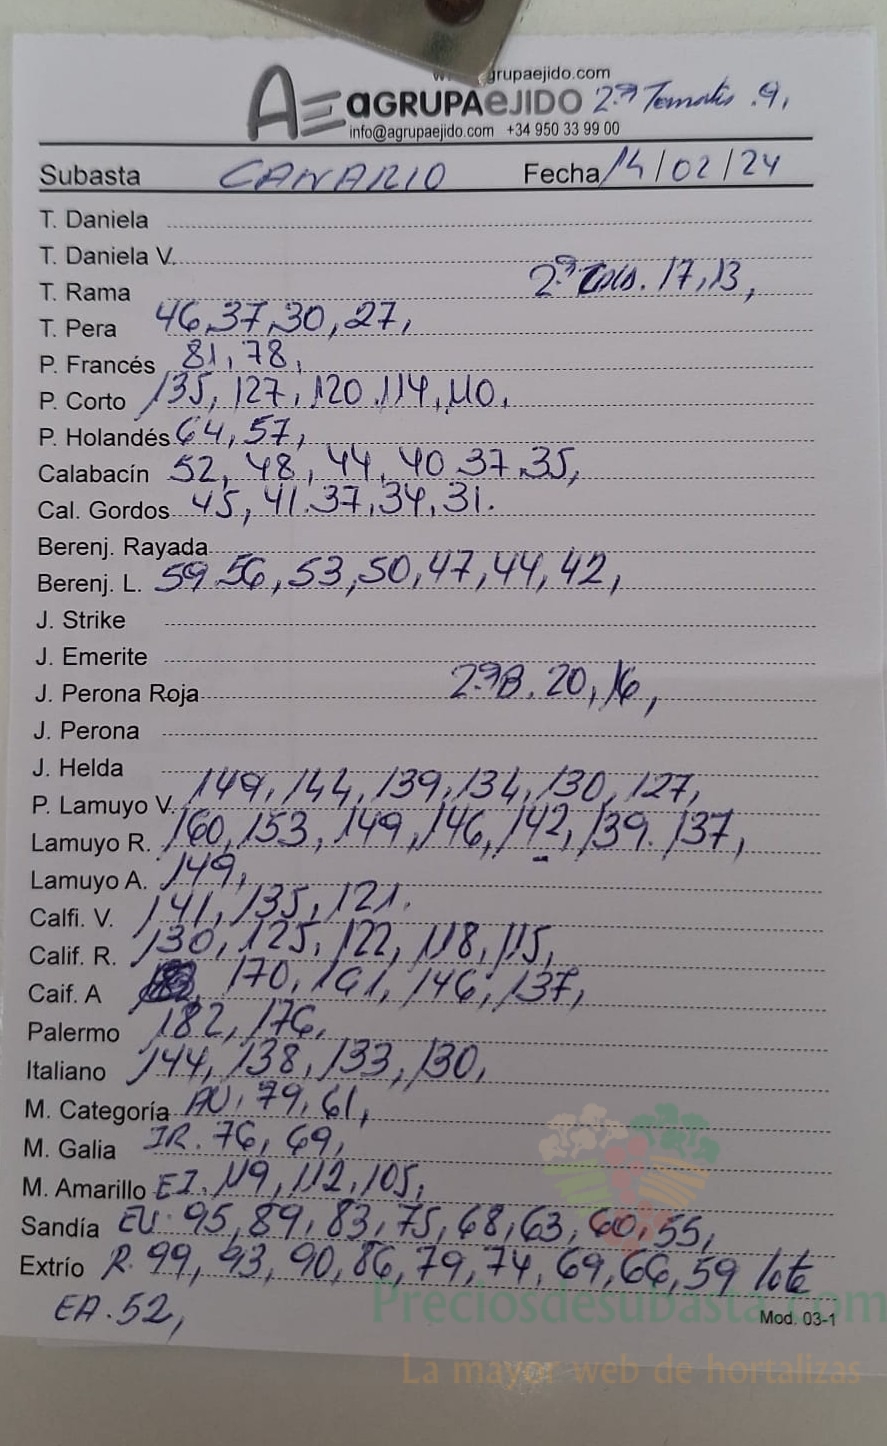 grupaejido.com
AGRUPAEJIDO 2ª Tomates .9,
info@agrupaejido.com +34 950 33 99 00
Subasta CANARIO Fecha 14/02/24
T. Daniela
T. Daniela V.
T. Rama 17,13,
T. Pera 46,37,30,27,
P. Francés 81,78,
P. Corto 135,127,120,114,110.
P. Holandés 64,57,
Calabacín 52,48,44,40,37,35,
Cal. Gordos 45,41.37,34,31.
Berenj. Rayada
Berenj. L. 59.56,53,50,47,44,42,
J. Strike
J. Emerite
J. Perona Roja 2ªB. 20,16,
J. Perona
J. Helda
P. Lamuyo V. 149,144,139,134,130,127,
Lamuyo R. 160,153,149,146,142,139.137,
Lamuyo A. 149,
Calfi. V. 141,135,121.
Calif. R. 130,125,122,118,115,
Caif. A 170, 146,137,
Palermo 182,176,
Italiano 144,138,133,130,
M. Categoría AU. 79,61,
M. Galia IR. 76,69,
M. Amarillo EI. 119,112,105,
Sandía EU. 95,89,83,75,68,63,60,55,
Extrío R. 99,93,90,86,79,74,69,66,59 lote
EA.52,
Preciosdesubasta.com
Mod. 03-1
La mayor web de hortalizas